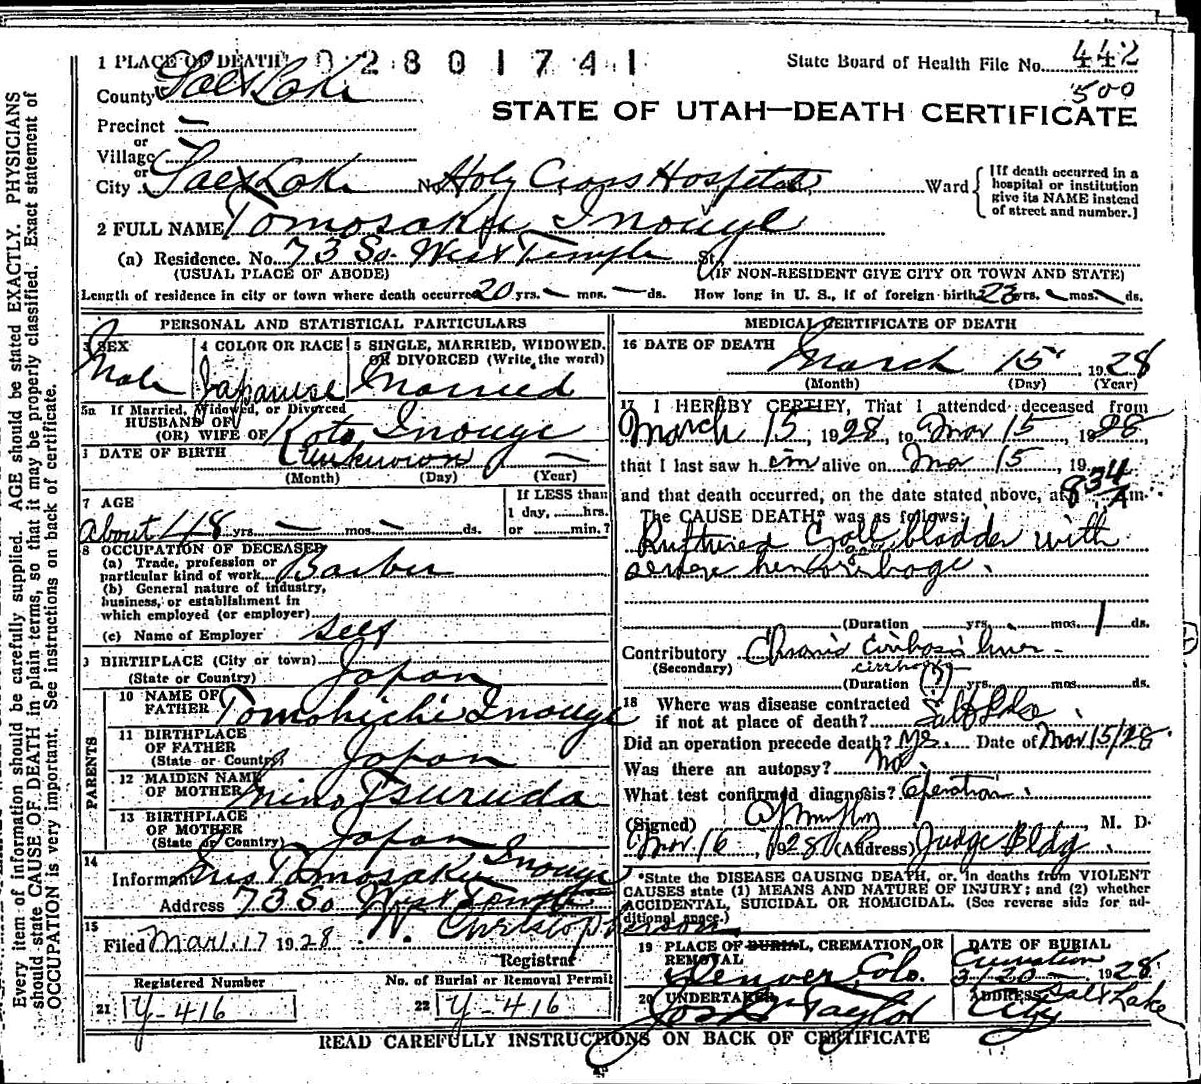 1 PLACE OF DEATH 0 2 8 0 1 7 4 1
State Board of Health File No. 442
500
County Salt Lake
STATE OF UTAH—DEATH CERTIFICATE
Precinct —
or
Village
or
City Salt Lake No. Holy Cross Hospital, Ward
[If death occurred in a
hospital or institution
give its NAME instead
of street and number.]
2 FULL NAME Tomosaku Inouye
(a) Residence. No. 73 So. West Temple St.
(USUAL PLACE OF ABODE) (IF NON-RESIDENT GIVE CITY OR TOWN AND STATE)
Length of residence in city or town where death occurred 20 yrs. — mos. — ds. How long in U. S., if of foreign birth 23 yrs. — mos. — ds.
PERSONAL AND STATISTICAL PARTICULARS
3 SEX
Male
4 COLOR OR RACE
Japanese
5 SINGLE, MARRIED, WIDOWED,
OR DIVORCED (Write the word)
Married
5a If Married, Widowed, or Divorced
HUSBAND OF
(OR) WIFE OF Koto Inouye
DATE OF BIRTH Unknown —
(Month) (Day) (Year)
7 AGE
About 48 yrs. — mos. — ds.
If LESS than
1 day, ......hrs.
or ......min.?
8 OCCUPATION OF DECEASED
(a) Trade, profession or
particular kind of work Barber
(b) General nature of industry,
business, or establishment in
which employed (or employer)
(c) Name of Employer Self
BIRTHPLACE (City or town)
(State or Country) Japan
PARENTS
10 NAME OF
FATHER Tomohichi Inouye
11 BIRTHPLACE
OF FATHER
(State or Country) Japan
12 MAIDEN NAME
OF MOTHER Mino Tsuruda
13 BIRTHPLACE
OF MOTHER
(State or Country) Japan
14
Informant Mrs Tomosaku Inouye
Address 73 So West Temple
15
Filed Mar. 17 1928 W. Christopherson
Registrar
Registered Number
21 Y-416
No. of Burial or Removal Permit
22 Y-416
MEDICAL CERTIFICATE OF DEATH
16 DATE OF DEATH
March 15 1928
(Month) (Day) (Year)
17 I HEREBY CERTIFY, That I attended deceased from
March 15, 1928, to Mar 15, 1928
that I last saw him alive on Mar 15, 19
and that death occurred, on the date stated above, at 8 34 A m.
The CAUSE DEATH* was as follows:
Ruptured Gall bladder with
severe hemorrhage.
(Duration yrs. mos. 1 ds.
Contributory Chronic cirrhosis liver
(Secondary) cirrhosis
(Duration (?) yrs. mos. ds.
18 Where was disease contracted
if not at place of death?
Did an operation precede death? Yes Date of Mar 15/28
Was there an autopsy? No
What test confirmed diagnosis? Operation
(Signed) , M. D.
Mar. 16, 1928 (Address) Judge Bldg
*State the DISEASE CAUSING DEATH, or, in deaths from VIOLENT
CAUSES state (1) MEANS AND NATURE OF INJURY; and (2) whether
ACCIDENTAL, SUICIDAL OR HOMICIDAL. (See reverse side for ad-
ditional space.)
19 PLACE OF BURIAL, CREMATION, OR
REMOVAL
Denver, Colo.
DATE OF BURIAL
Cremation
3/20 1928
20 UNDERTAKER
Jos Taylor
ADDRESS Salt Lake
City
READ CAREFULLY INSTRUCTIONS ON BACK OF CERTIFICATE
Every item of information should be carefully supplied. AGE should be stated EXACTLY. PHYSICIANS
should state CAUSE OF DEATH in plain terms, so that it may be properly classified. Exact statement of
OCCUPATION is very important. See instructions on back of certificate.